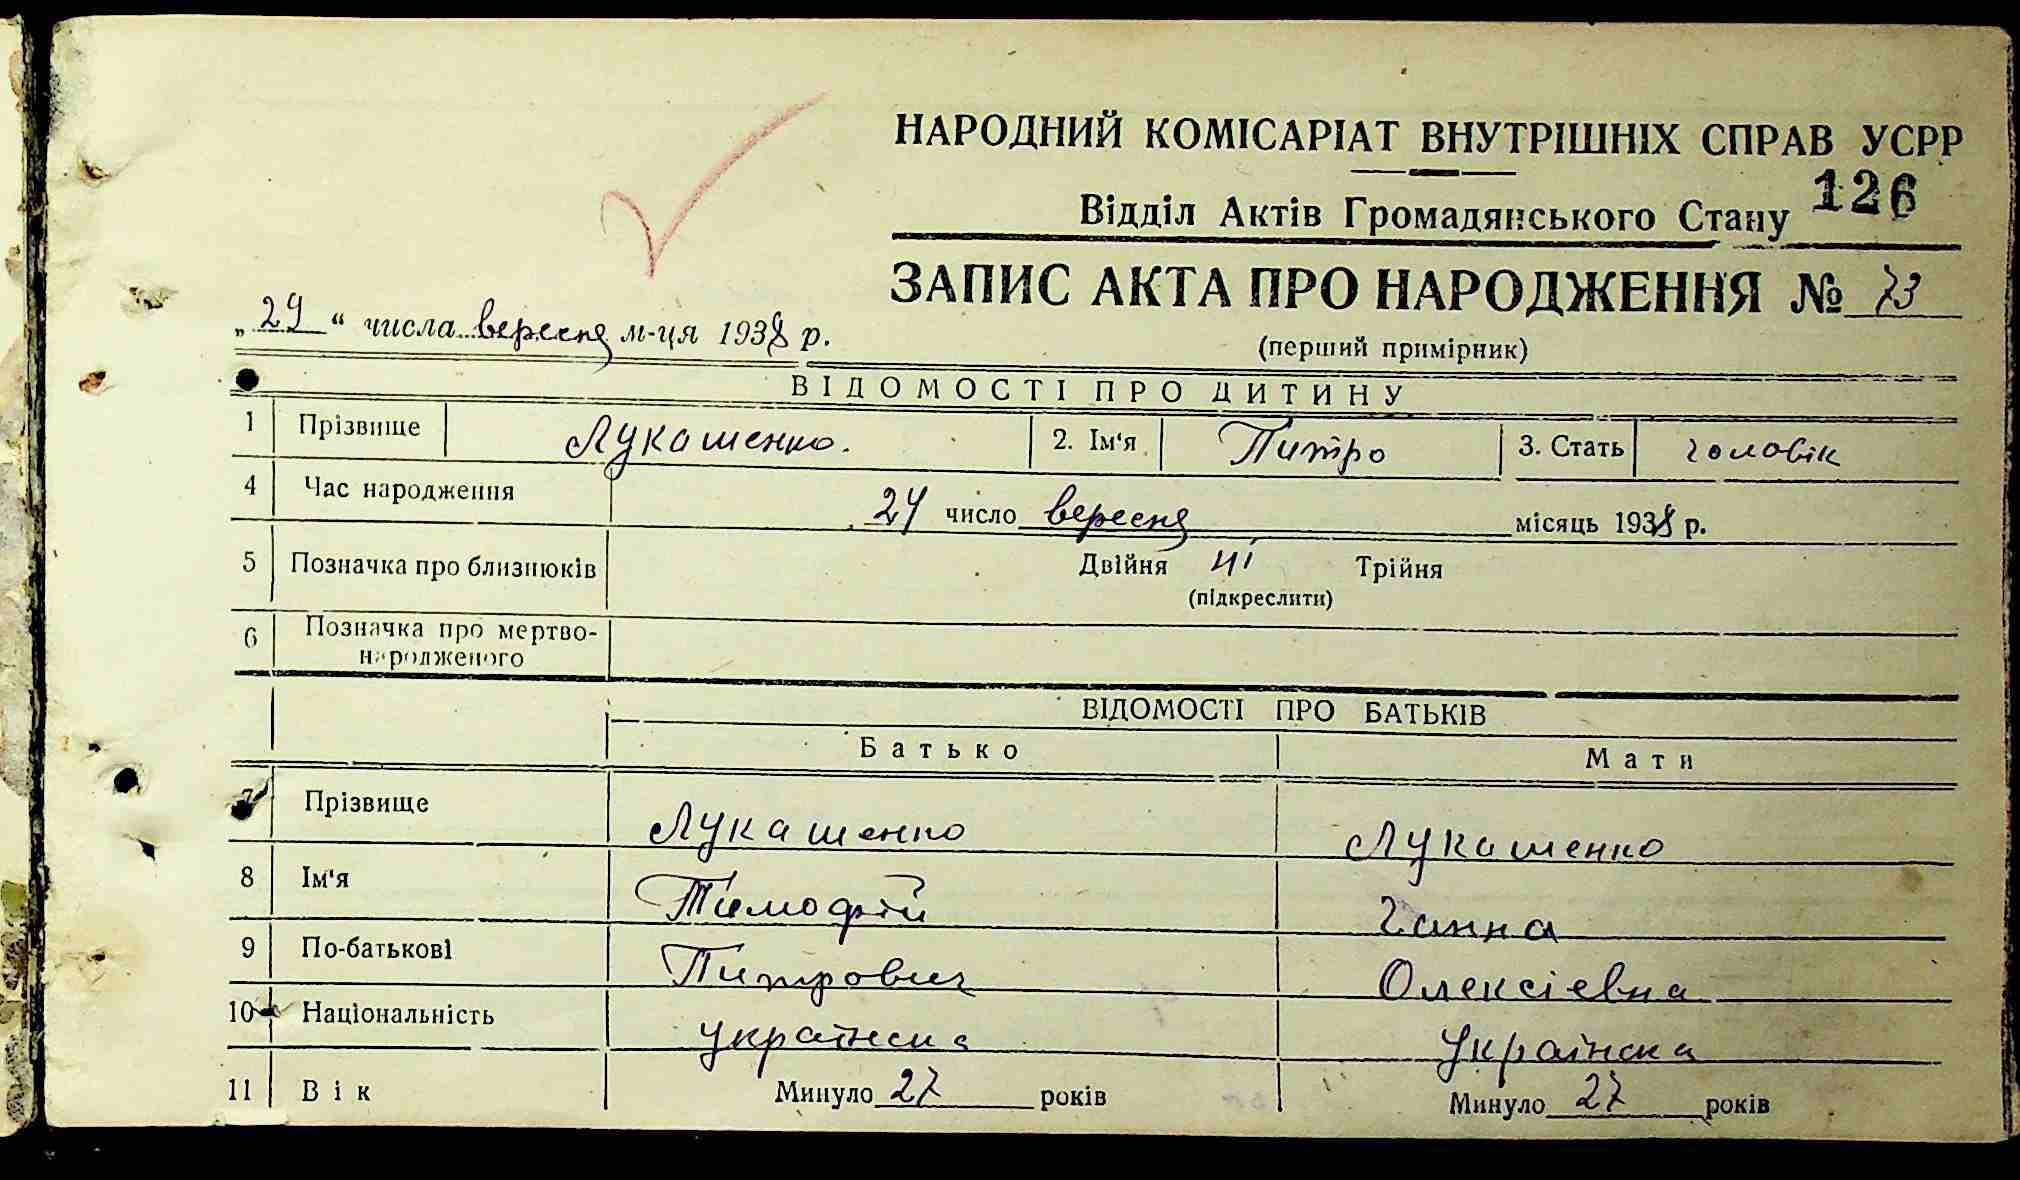 НАРОДНИЙ КОМІСАРІАТ ВНУТРІШНІХ СПРАВ УСРР
126
Відділ Актів Громадянського Стану
ЗАПИС АКТА ПРО НАРОДЖЕННЯ № 73
„29“ числа вересня м-ця 1938 р.
(перший примірник)
ВІДОМОСТІ ПРО ДИТИНУ
1 Прізвище Лукашенко. 2. Ім'я Питро 3. Стать чоловік
4 Час народження 24 число вересня місяць 1938 р.
5 Позначка про близнюків Двійня ні Трійня
(підкреслити)
6 Позначка про мертво-
народженого
ВІДОМОСТІ ПРО БАТЬКІВ
Батько Мати
7 Прізвище Лукашенко Лукашенко
8 Ім'я Тимофій Ганна
9 По-батькові Питрович Олексієвна
10 Національність українска Українска
11 Вік Минуло 27 років Минуло 27 років